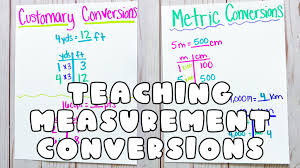 Customary Conversions
4 yds = 12 ft
yds ft
1 x3 3
4 x3 12
Metric Conversions
5m = 500 cm
m cm
1 100
5 500
= 4 km
TEACHING
MEASUREMENT
CONVERSIONS